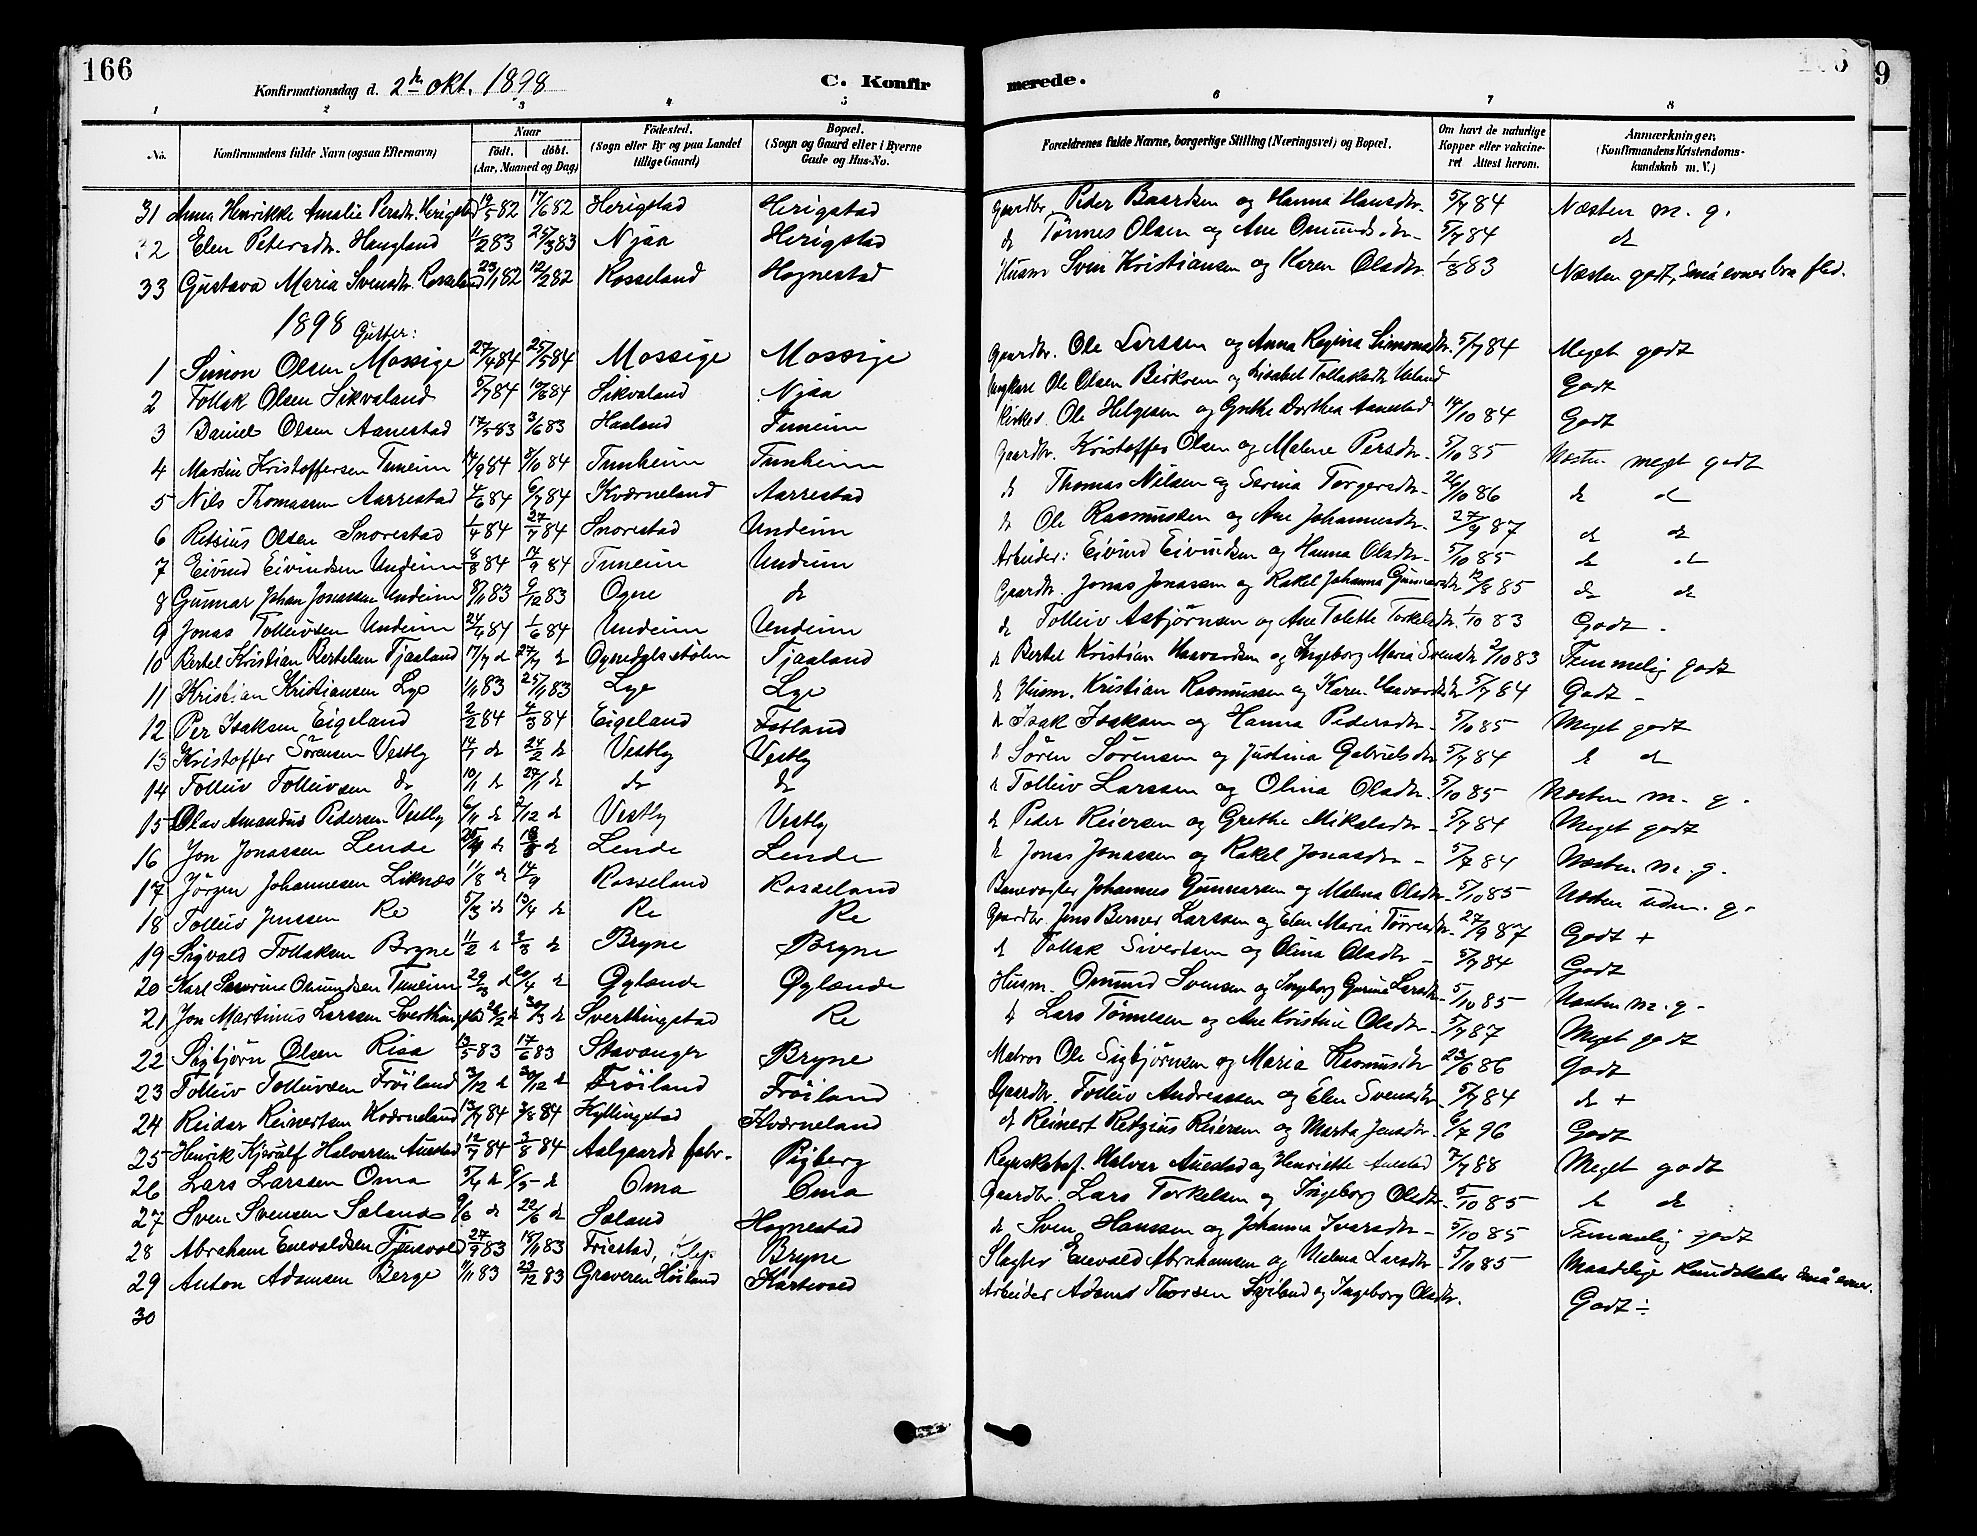 166
Konfirmationsdag d. 2den Okt. 1898
C. Konfirmerede.
1 2 3 4 5 6 7 8
No. Konfirmandens fulde Navn (ogsaa Efternavn) Naar født, døbt. (Aar, Maaned og Dag) Fødested. (Sogn eller By og paa Landet tillige Gaard) Bopæl. (Sogn og Gaard eller i Byerne Gade og Hus-No. Forældrenes fulde Navne, borgerlige Stilling (Næringsvei) og Bopæl. Om havt de naturlige Kopper eller vaccineret Attest herom. Anmærkninger. (Konfirmandens Kristendomskundskab m. V.)
31 Anna Henrikke Amalie Persdtr. Herigstad 19/5 82 17/6 82 Herigstad Herigstad Gaardbr. Peder Baardsen og Hanna Hansdtr. 5/7 84 Næsten m. g.
32 Elen Petersdtr. Haugland 11/2 83 25/3 83 Njaa Herigstad do Tønnes Olsen og Ane Omundsdtr. 5/7 84 do
33 Gustava Maria Svensdtr. Rosseland 23/1 82 12/2 82 Rosseland Hognestad Husm. Sven Kristiansen og Karen Olsdtr. 1/8 83 Næsten godt, små evner bra flid.
1898 Gutter:
1 Simon Olsen Mossige 27/4 84 25/5 84 Mossige Mossige Gaardbr. Ole Larssen og Anna Regina Simonsdtr. 5/7 84 Meget godt
2 Tollak Olsen Sikvaland 5/7 84 10/8 84 Sikvaland Njaa Ungkarl Ole Olsen Birkrem og Lisabet Tollaksdtr. Ueland Godt
3 Daniel Olsen Aanestad 17/5 83 3/6 83 Haaland Tuneim Ole Helgesen og Grethe Dorthea Aanestad 14/10 84 Godt
4 Martin Kristoffersen Tuneim 14/9 84 8/10 84 Tunheim Tunheim Gaardbr. Kristoffer Olsen og Malene Persdtr. 5/10 85 Næsten meget godt
5 Nils Thomassen Aarrestad 4/6 84 6/7 84 Kværneland Aarrestad do Thomas Nilsen og Serina Torgersdtr. 26/10 86 do do
6 Retsius Olsen Snorestad 1/4 84 27/4 84 Snorestad Undeim do Ole Rasmussen og Ane Johannesdtr. 27/9 87 do do
7 Eivind Eivindsen Undeim 8/8 84 14/9 84 Tuneim Undeim Arbeider: Eivind Eivindsen og Hanna Olsdtr. 5/10 85 do do
8 Gunnar Johan Jonassen Undeim 8/11 83 9/12 83 Ogne do Gaardbr. Jonas Jonassen og Rakel Johanna Gunnarsdtr. 12/8 85 do do
9 Jonas Tolleivsen Undeim 24/4 84 1/6 84 Undeim Undeim do Tolleiv Asbjørnsen og Ane Tolette Torkelsdtr. 1/10 83 Godt
10 Bertel Kristian Bertelsen Tjaaland 17/7 do 27/7 do Ognedalsstølen Tjaaland do Bertel Kristian Haavardsen og Ingeborg Maria Svensdtr. 2/10 83 Temmelig godt
11 Kristian Kristiansen Lye 1/11 83 25/11 83 Lye Lye do Husm. Kristian Rasmussen og Karen Haavardsdtr. 5/7 84 Godt
12 Per Isaksen Eigeland 2/2 84 4/3 84 Eigeland Fotland do Isak Isaksen og Hanna Pedersdtr. 5/10 85 Meget godt
13 Kristoffer Sørensen Vestly 14/1 do 24/2 do Vestly Vestly do Søren Sørensen og Justina Gabrielsdtr. 5/7 84 do do
14 Tolleiv Tolleivsen do 10/1 do 27/1 do do do do Tolleiv Larssen og Olina Olsdtr. 5/10 85 Næsten m. g.
15 Olav Amandus Pedersen Vestly 6/11 do 7/12 do Vestly Vestly do Peder Reiersen og Grethe Mikalsdtr. 5/7 84 Meget godt
16 Jon Jonassen Lende do do Lende Lende do Jonas Jonassen og Rakel Jonasdtr. 5/7 84 Næsten m. g.
17 Jørgen Johannesen Liknæs 11/8 do 14/9 Rosseland Rosseland Banevogter Johannes Gunnarsen og Malena Olsdtr. 5/10 85 Næsten udm. g.
18 Tolleiv Jenssen Re 5/3 do 13/4 do Re Re Gaardbr. Jens Berner Larssen og Elen Maria Tørresdtr. 27/9 87 Godt +
19 Sigvald Tollaksen Bryne 11/2 do 2/3 do Bryne Bryne do Tollak Sivertsen og Olina Olsdtr. 5/7 84 Godt
20 Karl Severin Omundsen Tuneim 29/3 do 20/4 do Øglænde Øglænde Husm. Omund Svensen og Ingeborg Gurina Larsdtr. 5/10 85 Næsten m. g.
21 Jon Martinus Larssen Sverthingstad 26/2 do 30/3 do Sverthingstad Re do Lars Tønnesen og Ane Kristine Olsdtr. 5/7 87 Meget godt
22 Sigbjørn Olsen Risa 13/5 83 17/6 83 Stavanger Bryne Matros Ole Sigbjørnsen og Maria Rasmusdtr. 23/6 86 Godt
23 Tolleiv Tolleivsen Frøiland 3/12 do 30/12 do Frøiland Frøiland Gaardbr. Tolleiv Andreassen og Elen Svensdtr. 5/7 84 do +
24 Reidar Reinertsen Kværneland 13/7 84 3/8 84 Kyllingstad Kværneland do Reinert Retzius Reiersen og Marta Jensdtr. 6/7 96 Godt
25 Henrik Kjerulf Halvorsen Auestad 12/7 84 3/8 84 Aalgaards fabr. Rygberg Regnskabsf. Halvor Auestad og Henriette Auestad 7/7 88 Meget godt
26 Lars Larssen Oma 5/4 do 9/5 do Oma Oma Gaardbr. Lars Torkelsen og Ingeborg Olsdtr. 5/10 85 do do
27 Sven Svensen Saland 9/6 do 22/6 do Saland Hognestad do Sven Hanssen og Johanna Ivarsdtr. 5/10 85 Temmelig godt
28 Abraham Enevaldsen Tjensvold 27/9 83 18/11 83 Friestad, Klep Bryne Slagter Enevald Abrahamsen og Malena Larsdtr. 5/10 85 Maadelige kundskaber små evner.
29 Anton Adamsen Berge 9/11 83 23/12 83 Graveren Høiland Kartevold Arbeider Adam Thorsen og Ingeborg Olsdtr. Godt ÷
30